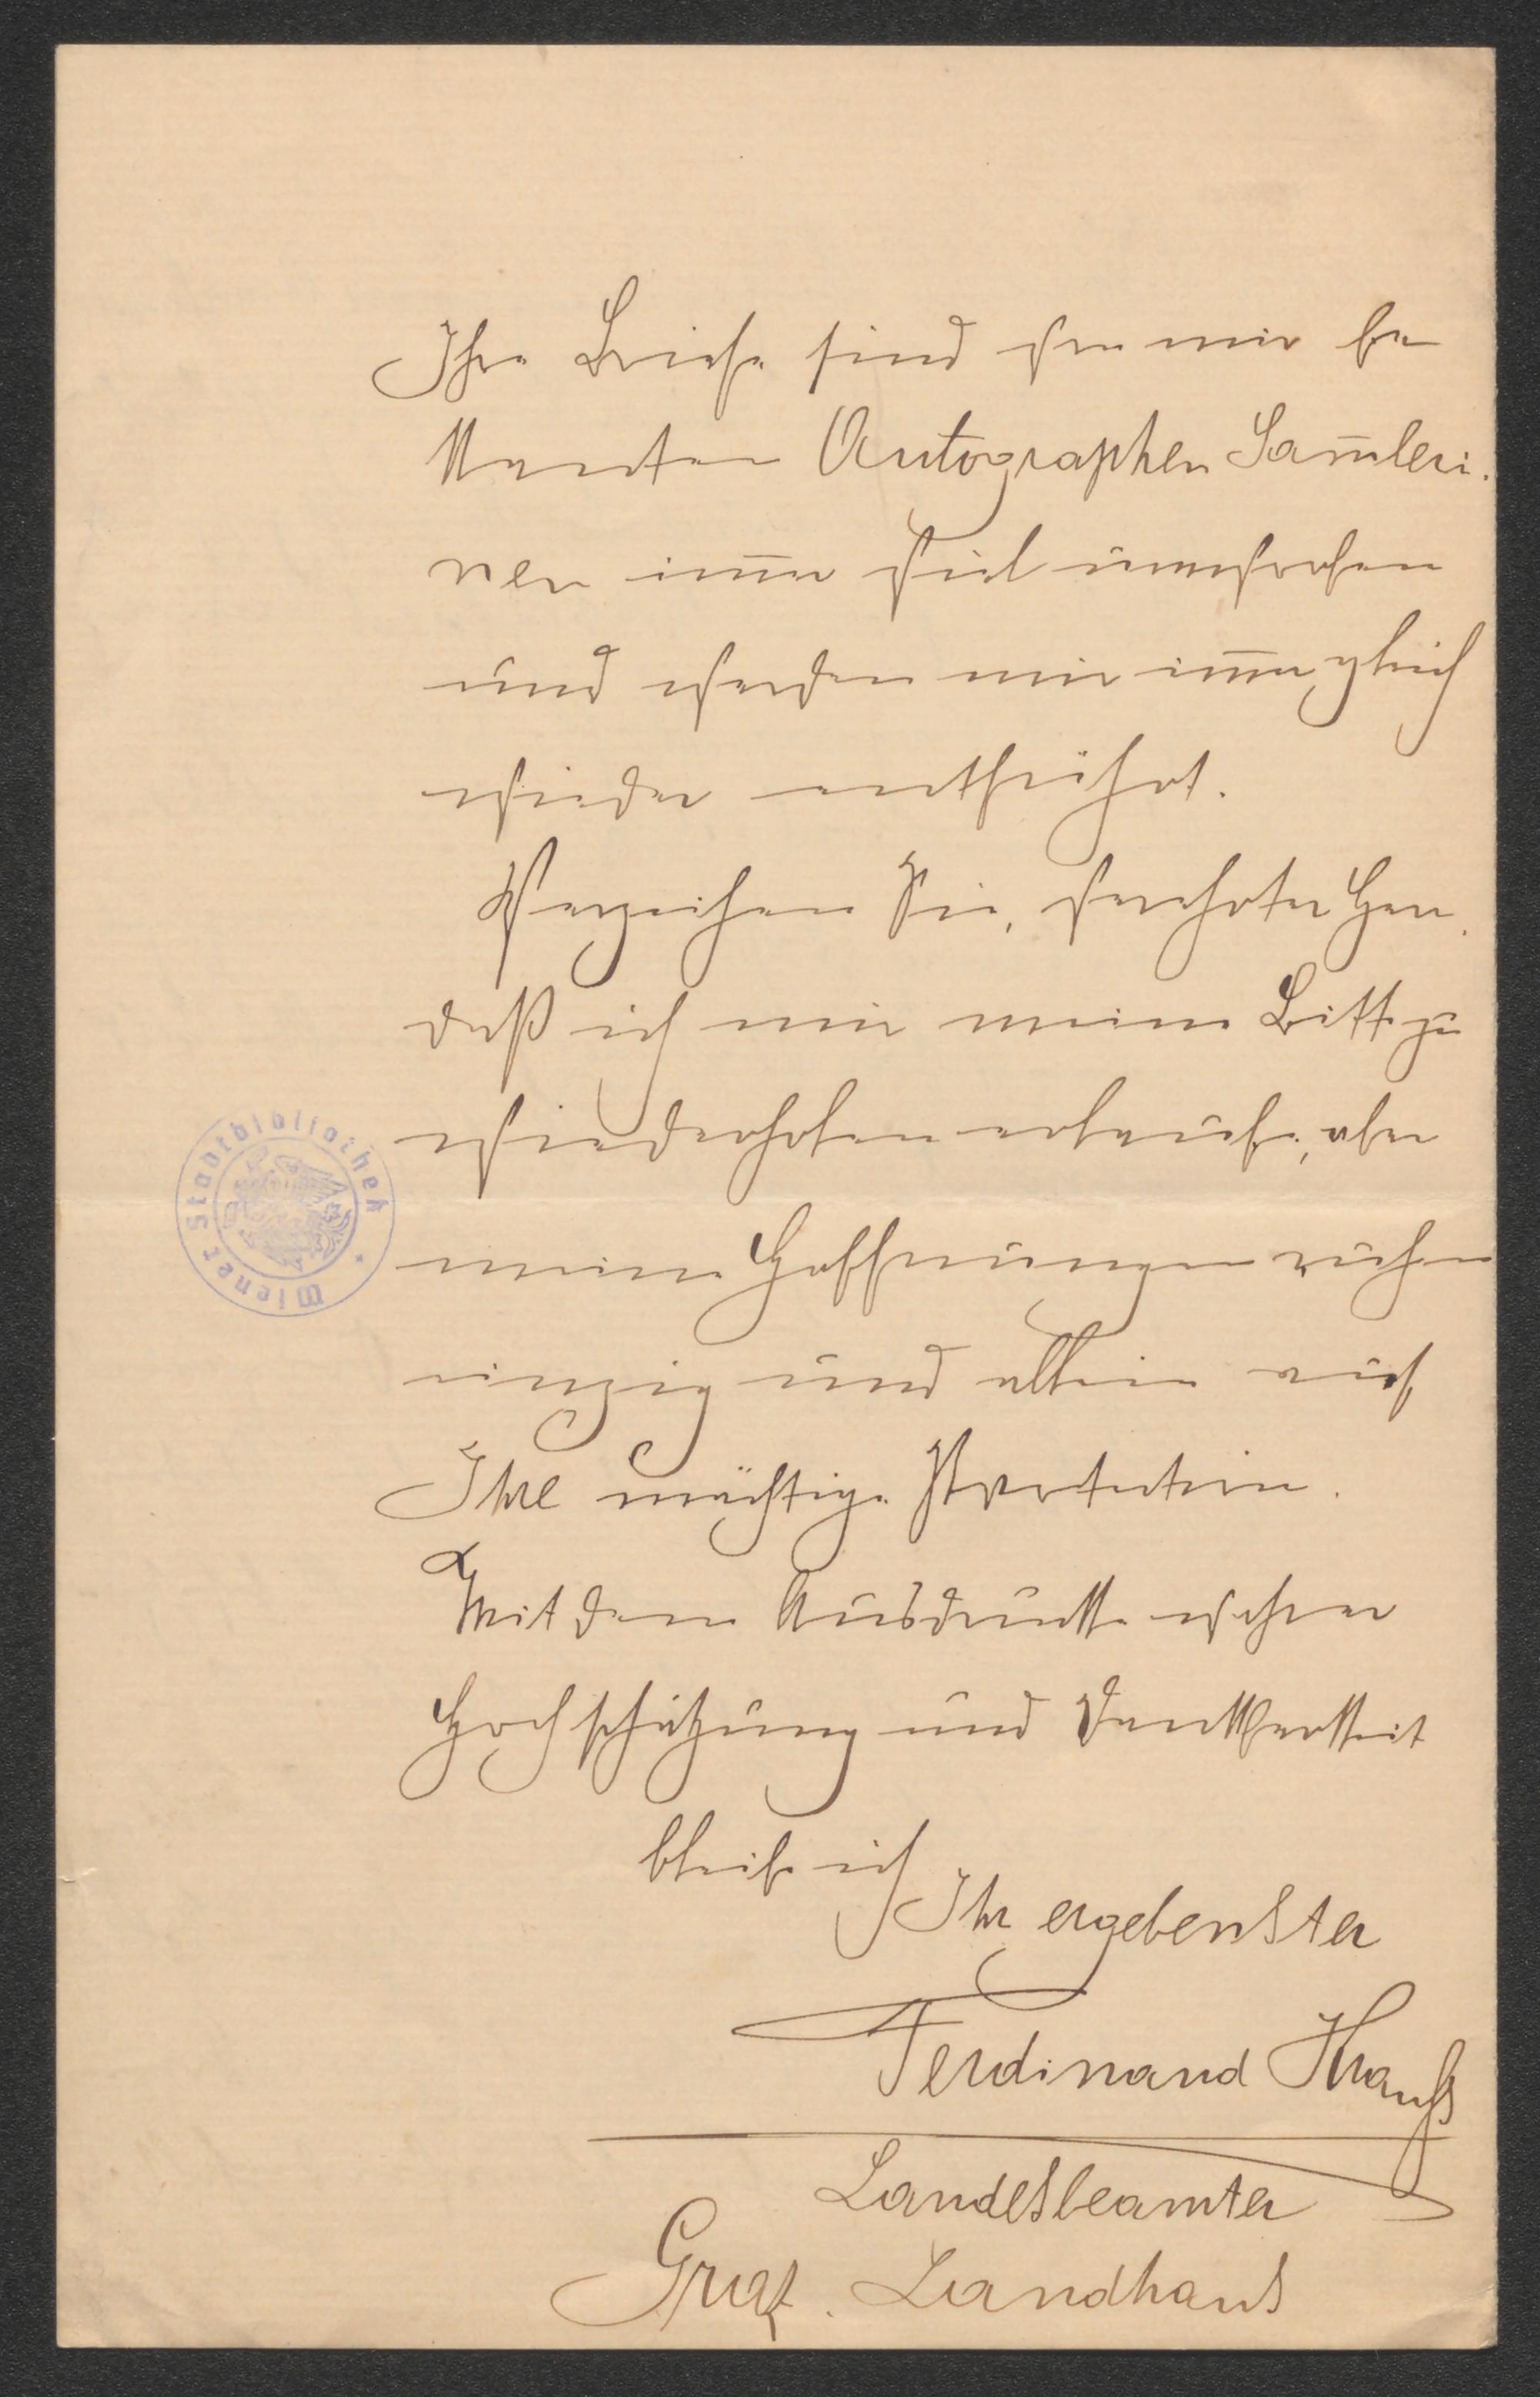 Ihre Briefe sind von mir be
kannten Autographen Sam̄leri.
nen im̄er viel umworben
und werden mir im̄er gleich
wieder entführt.
Verzeihen Sie, verehrter Herr,
daß ich mir meine Bitte zu
wiederholen erlaube, aber
meine Hoffnungen ruhen
einzig und allein auf
Ihre mächtige Protection.
Mit dem Ausdrucke wahrer
Hochschätzung und Dankbarkeit
bleibe ich
Ihr ergebenster
Ferdinand Krauß
Landesbeamter
Graz. Landhaus
Wiener Stadtbibliothek